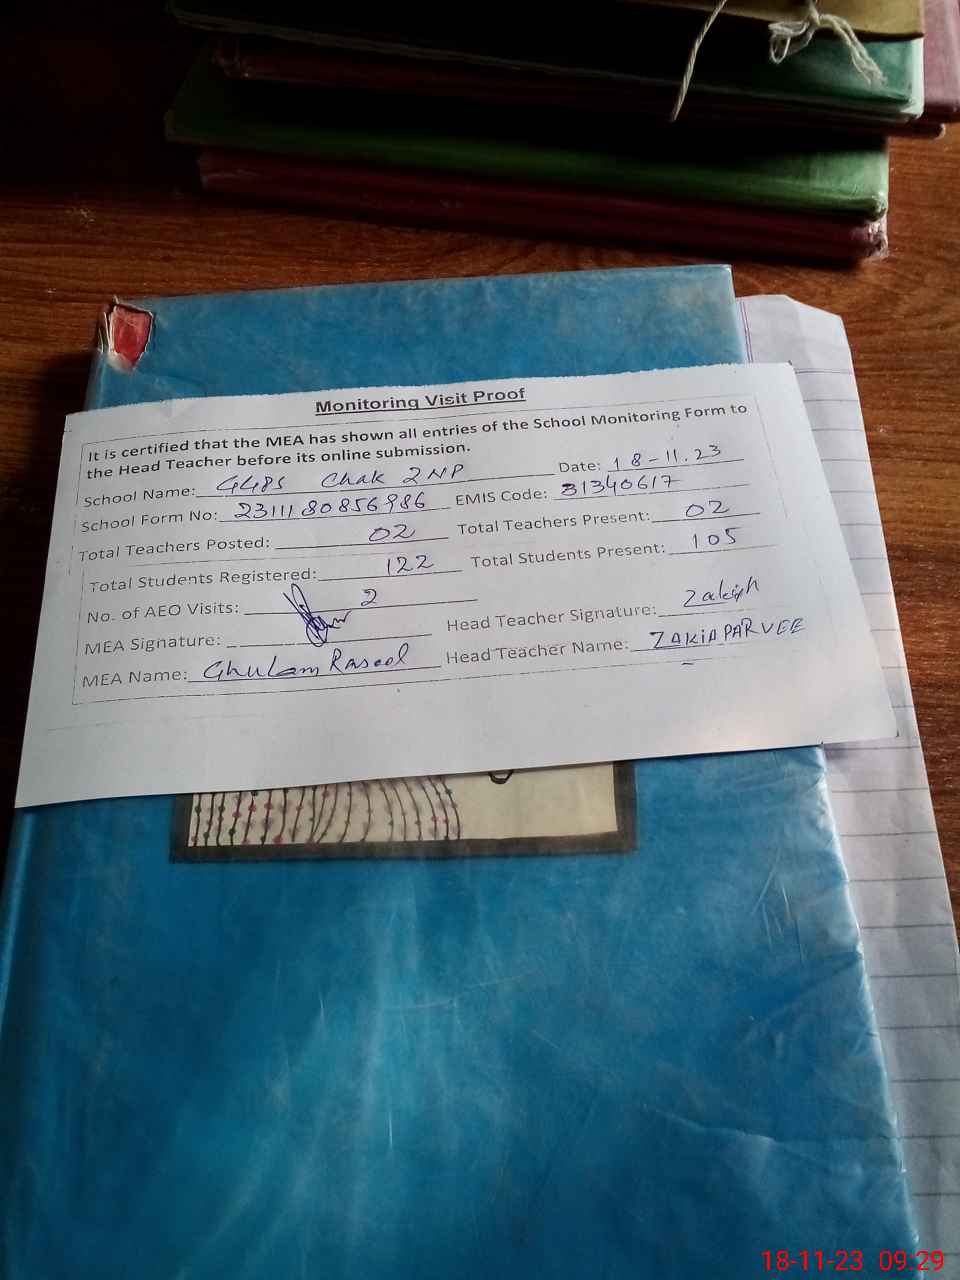 Monitoring Visit Proof
It is certified that the MEA has shown all entries of the School Monitoring Form to
the Head Teacher before its online submission.
School Name: GGPS Chak 2NP Date: 18-11.23
School Form No: 2311180856986 EMIS Code: 31340617
Total Teachers Posted: 02 Total Teachers Present: 02
Total Students Registered: 122 Total Students Present: 105
No. of AEO Visits: 2
MEA Signature: Head Teacher Signature:
MEA Name: Ghulam Rasool Head Teacher Name: ZAKIA PARVEE
18-11-23 09:29